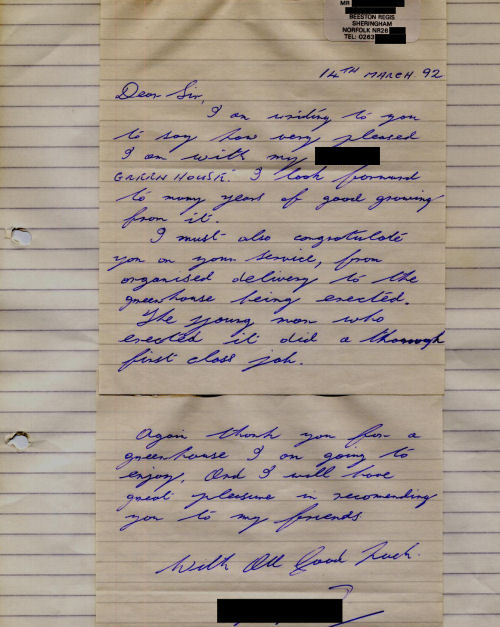 MR
BEESTON REGIS
SHERINGHAM
NORFOLK NR26
TEL: 0263
14TH MARCH 92
Dear Sir,
I am writing to you
to say how very pleased
I am with my
GREENHOUSE. I look forward
to many years of good growing
from it.
I must also congratulate
you on your service, from
organised delivery to the
greenhouse being erected.
The young man who
erected it did a thorough
first class job.
Again thank you for a
greenhouse I am going to
enjoy. And I will have
great pleasure in recomending
you to my friends
With All Good Luck.